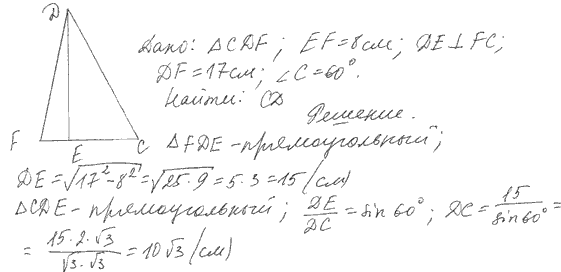 D
Дано: △CDF; EF=8см; DE⊥FC;
DF=17см; ∠C=60°.
Найти: CD
Решение.
F E C
△FDE - прямоугольный;
DE=√(17²-8²)=√(25·9)=5·3=15 (см)
△CDE - прямоугольный; DE/DC=sin60°; DC=15/sin60°=
=(15·2·√3)/(√3·√3)=10√3 (см)